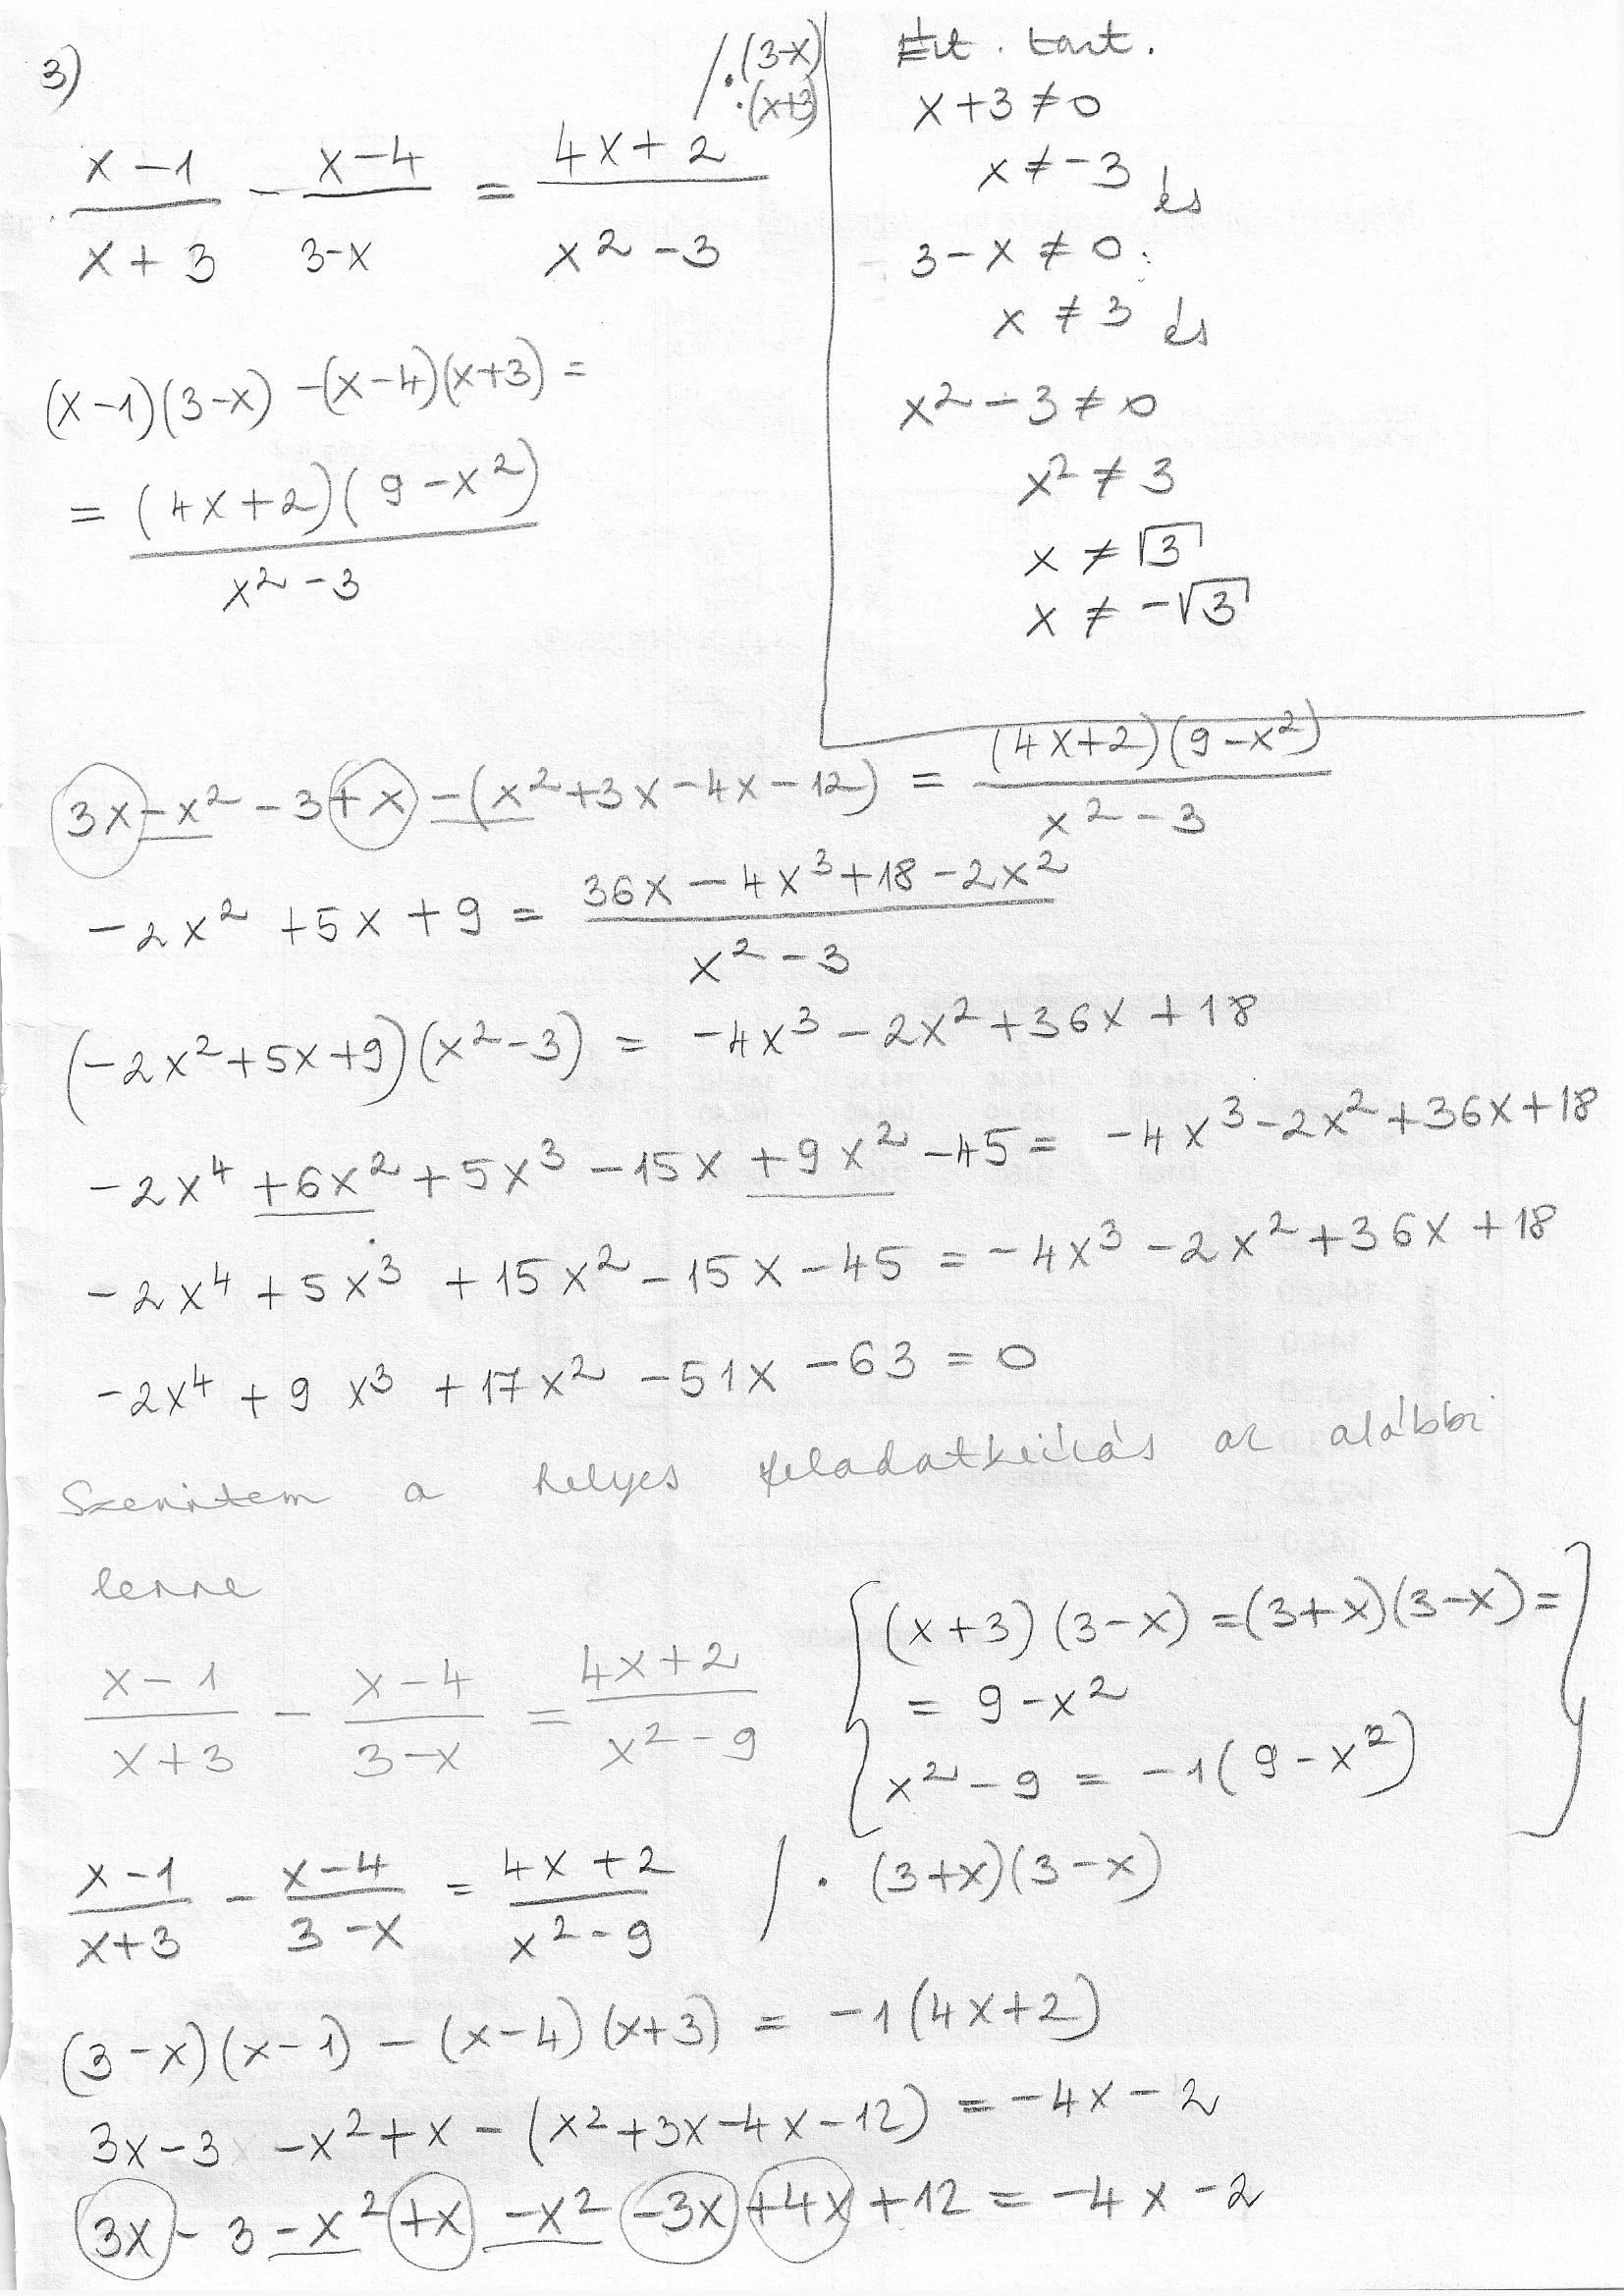 3)
/·(3-x)
·(x+3)
x-1 / x+3 - x-4 / 3-x = 4x+2 / x²-3
(x-1)(3-x) -(x-4)(x+3) =
= (4x+2)(9-x²) / x²-3
Ért. tart.
x+3≠0
x≠-3 és
3-x≠0
x≠3 és
x²-3≠0
x²≠3
x≠√3
x≠-√3
3x-x²-3+x-(x²+3x-4x-12) = (4x+2)(9-x²) / x²-3
-2x²+5x+9 = 36x-4x³+18-2x² / x²-3
(-2x²+5x+9)(x²-3) = -4x³-2x²+36x+18
-2x⁴+6x²+5x³-15x+9x²-45 = -4x³-2x²+36x+18
-2x⁴+5x³+15x²-15x-45 = -4x³-2x²+36x+18
-2x⁴+9x³+17x²-51x-63=0
Szerintem a helyes feladatkiírás az alábbi
lenne
x-1 / x+3 - x-4 / 3-x = 4x+2 / x²-9
{(x+3)(3-x)=(3+x)(3-x)=
= 9-x²
x²-9 = -1(9-x²)}
x-1 / x+3 - x-4 / 3-x = 4x+2 / x²-9 /·(3+x)(3-x)
(3-x)(x-1)-(x-4)(x+3) = -1(4x+2)
3x-3-x²+x-(x²+3x-4x-12) = -4x-2
3x-3-x²+x-x²-3x+4x+12 = -4x-2